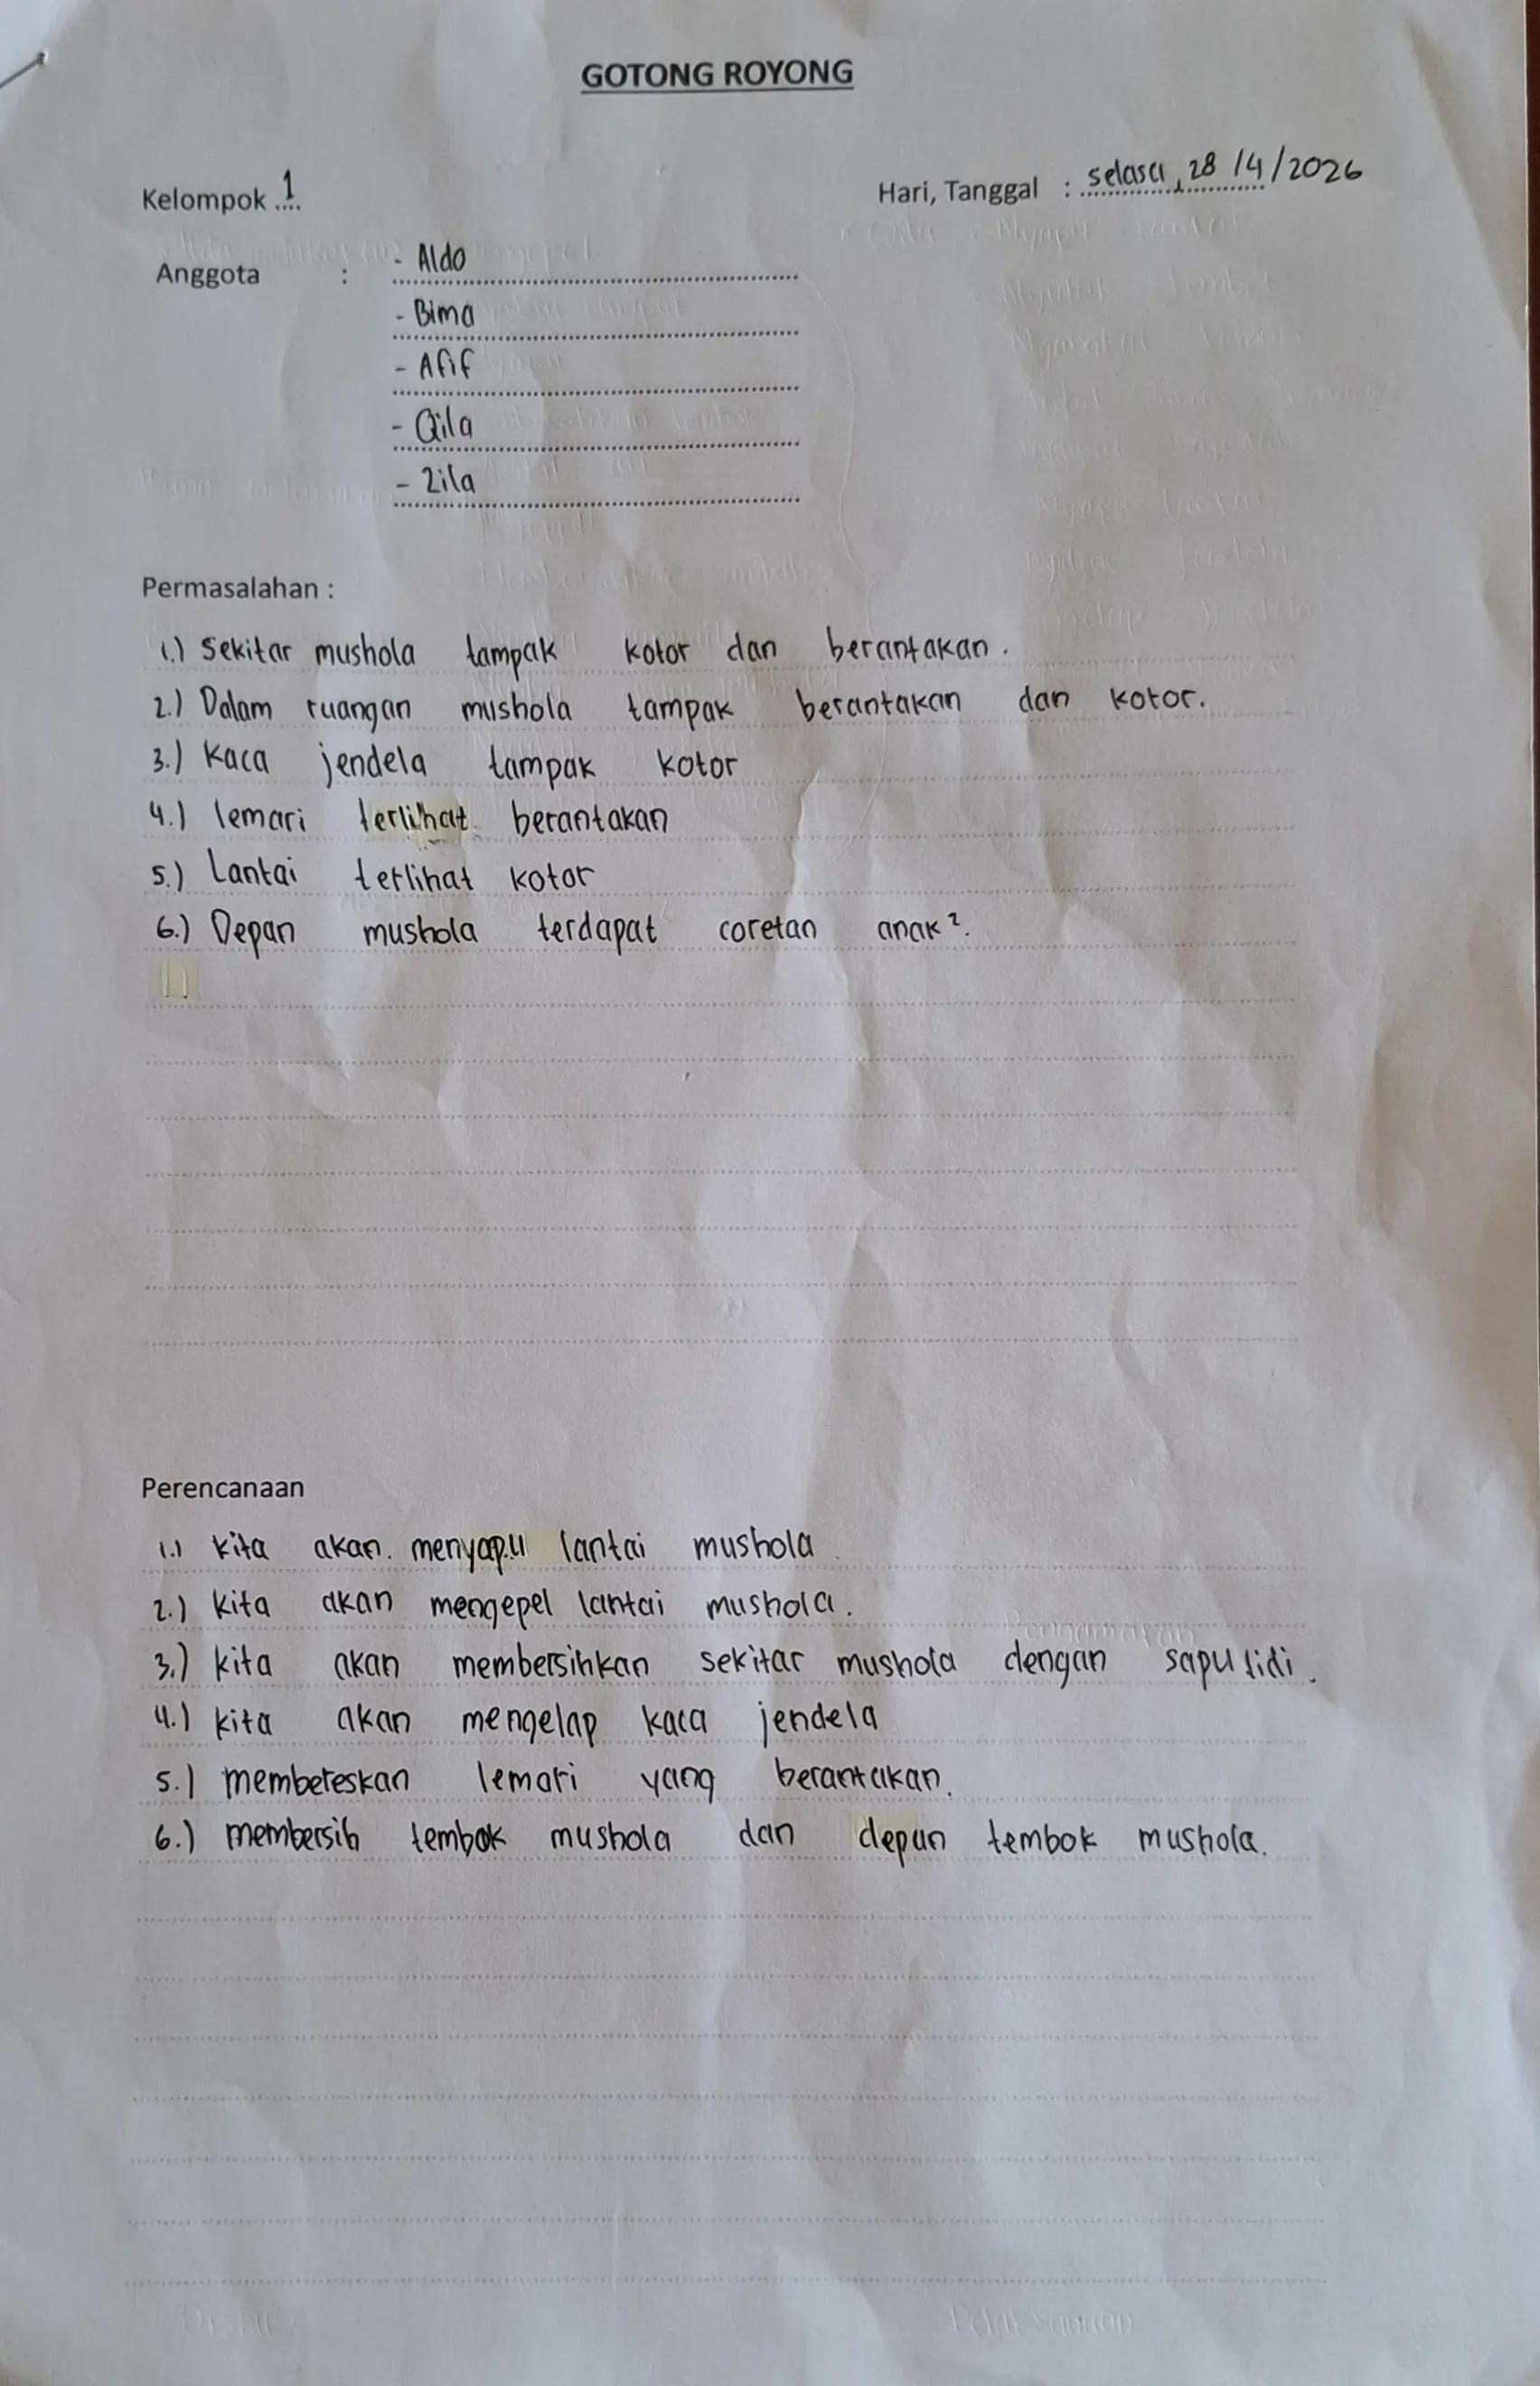 GOTONG ROYONG
Kelompok 1
Hari, Tanggal : selasa, 28 /4/2026
Anggota : - Aldo
- Bima
- Afif
- Qila
- Zila
Permasalahan :
1.) Sekitar mushola tampak kotor dan berantakan.
2.) Dalam ruangan mushola tampak berantakan dan kotor.
3.) Kaca jendela tampak kotor
4.) lemari terlihat berantakan
5.) Lantai terlihat kotor
6.) Depan mushola terdapat coretan anak².
Perencanaan
1.) kita akan menyapu lantai mushola
2.) kita akan mengepel lantai mushola.
3.) kita akan membersihkan sekitar mushola dengan sapu lidi.
4.) kita akan mengelap kaca jendela
5.) membereskan lemari yang berantakan.
6.) membersih tembok mushola dan depan tembok mushola.